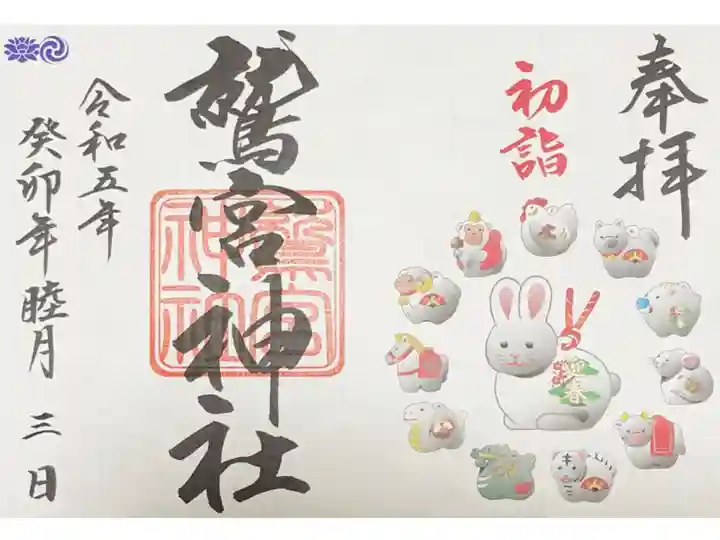 奉拝
初詣
迎春
鷲宮神社
鷲宮
神社
令和五年
癸卯年睦月 三日